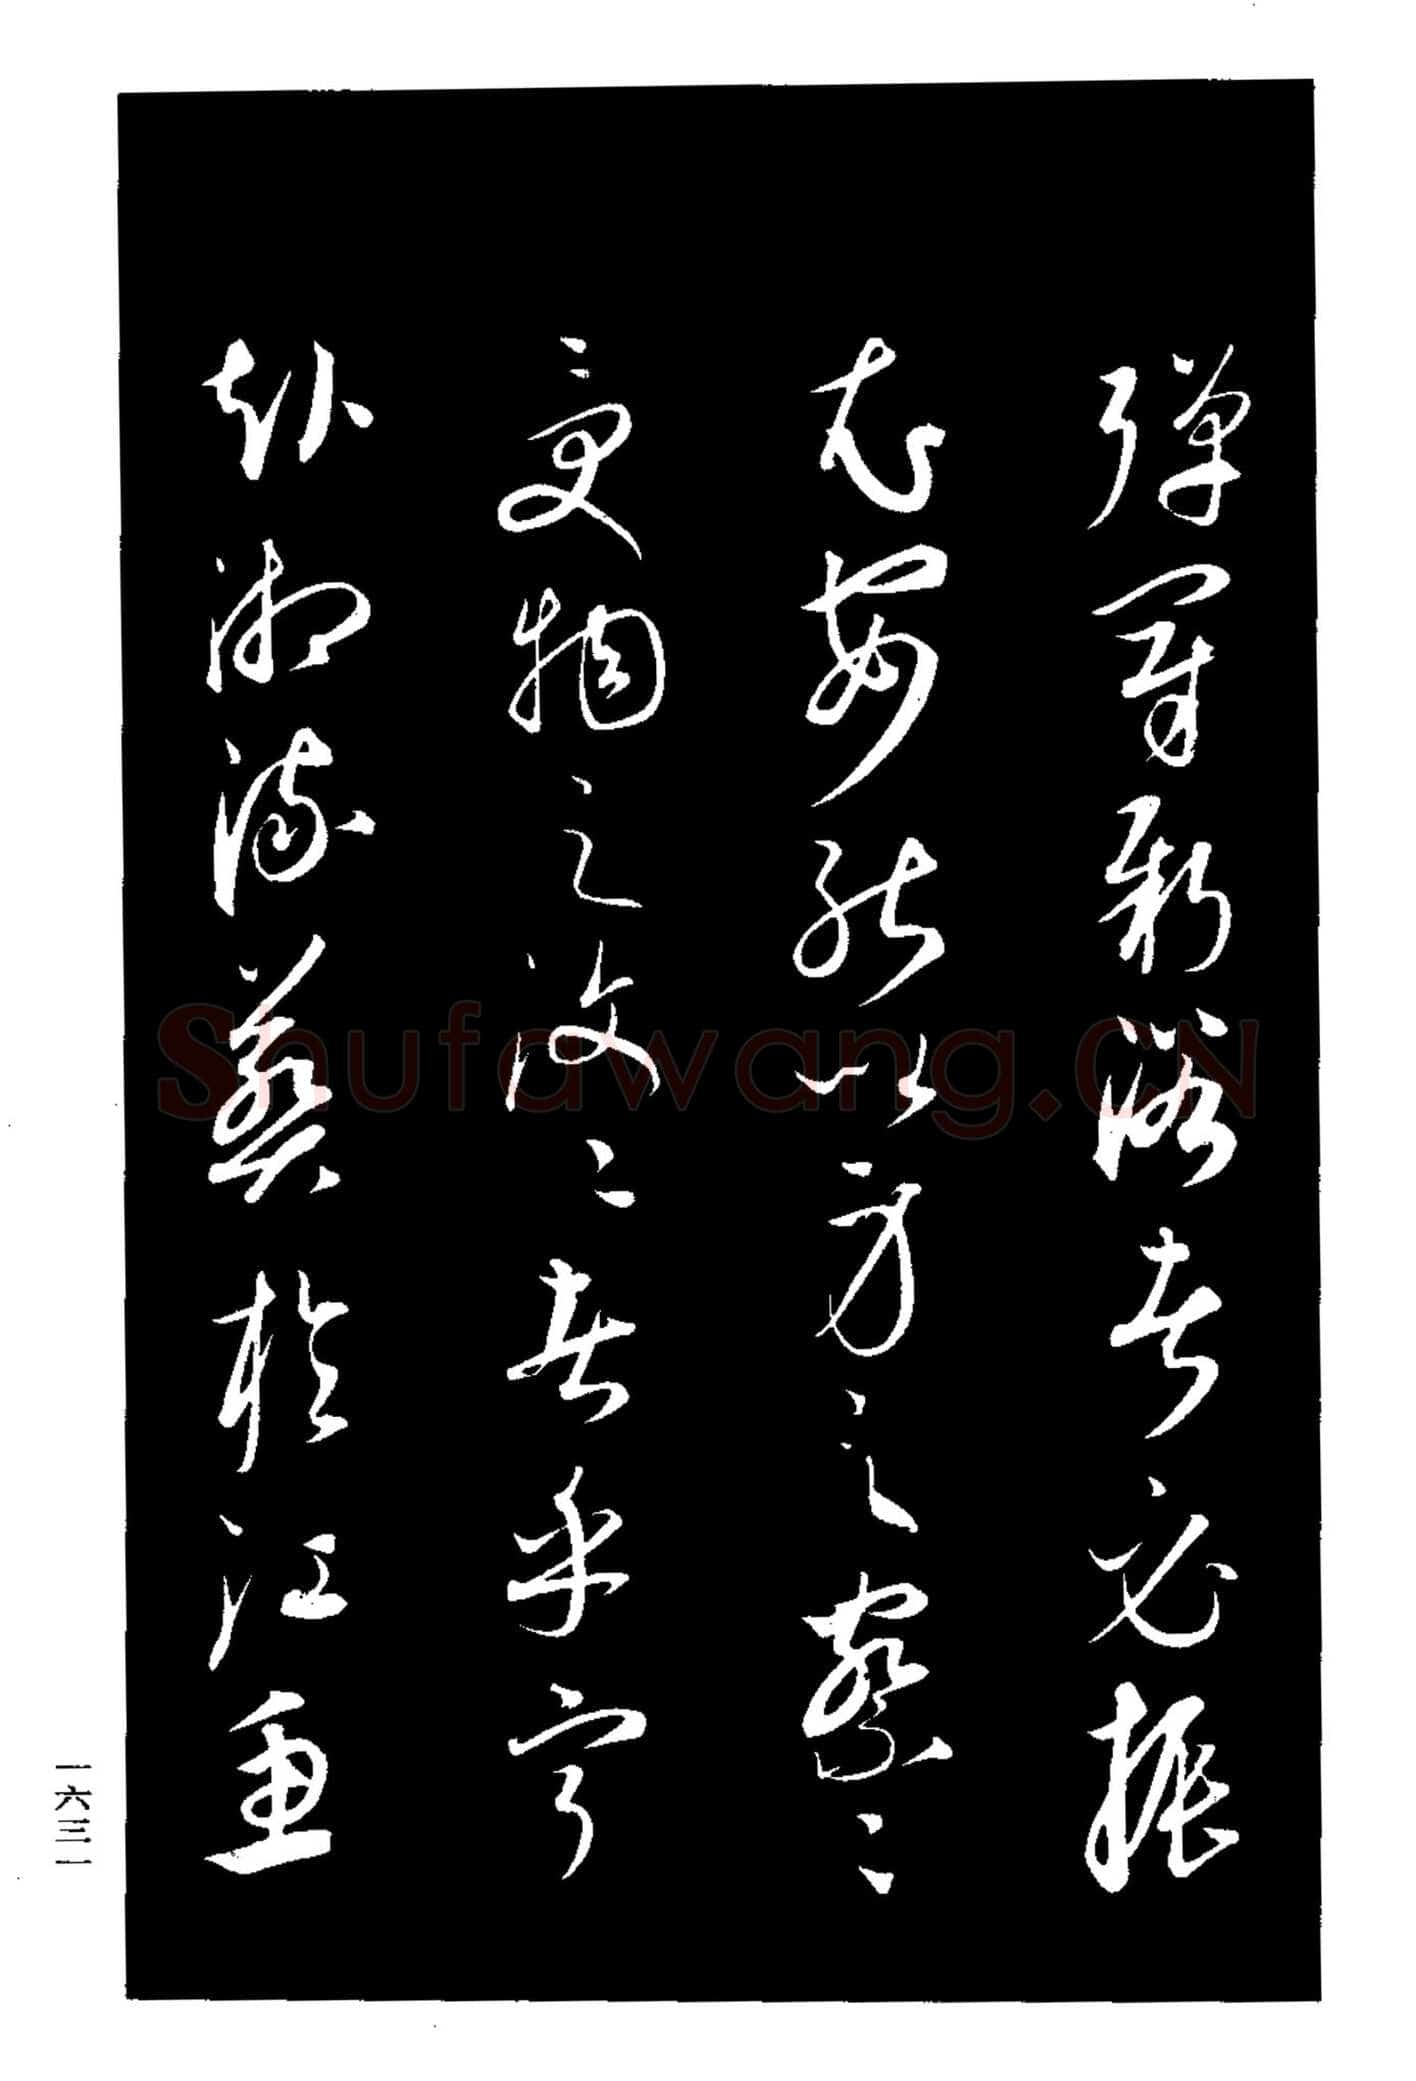 彈冠新浴者必振
衣安能以身之察〻
受物之汶〻者乎寧
赴湘流葬於江魚
一六三一
Shufawang.CN